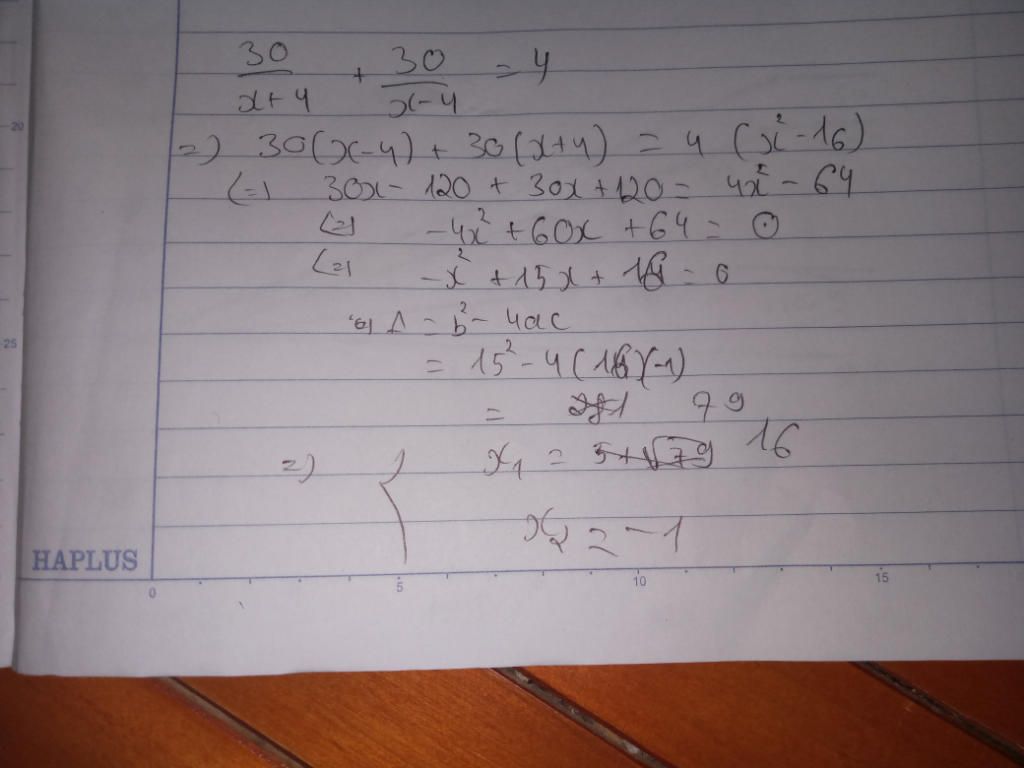 30/(x+4) + 30/(x-4) = 4
=) 30(x-4) + 30(x+4) = 4 (x²-16)
(=) 30x - 120 + 30x + 120 = 4x² - 64
(=) -4x² + 60x + 64 = 0
(=) -x² + 15x + 16 = 0
Δ = b² - 4ac
= 15² - 4(16)(-1)
= 79
=) { x₁ = 16
x₂ = -1
HAPLUS
20
25
0 5 10 15